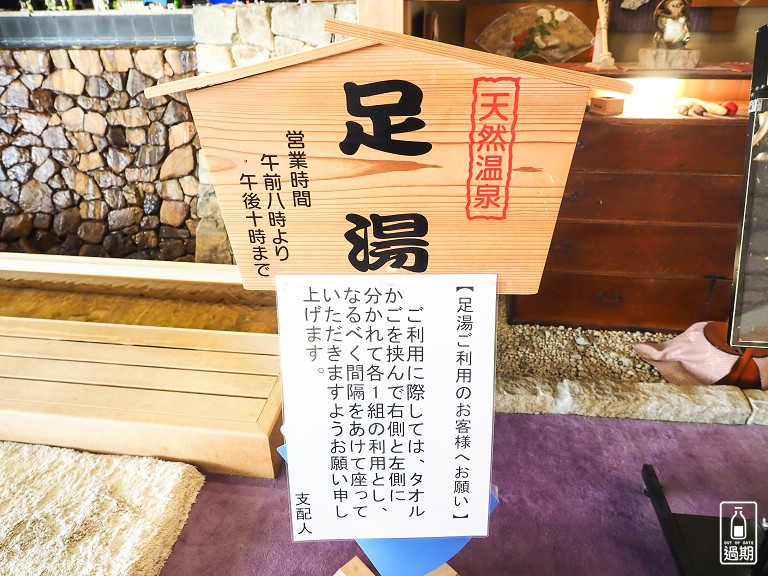 天然温泉
足湯
営業時間
午前八時より
午後十時まで
【足湯ご利用のお客様へお願い】
ご利用に際しては、タオル
かごを挟んで右側と左側に
分かれて各1組の利用とし、
なるべく間隔をあけて座って
いただきますようお願い申し
上げます。
支配人
OUT OF DATE
過期